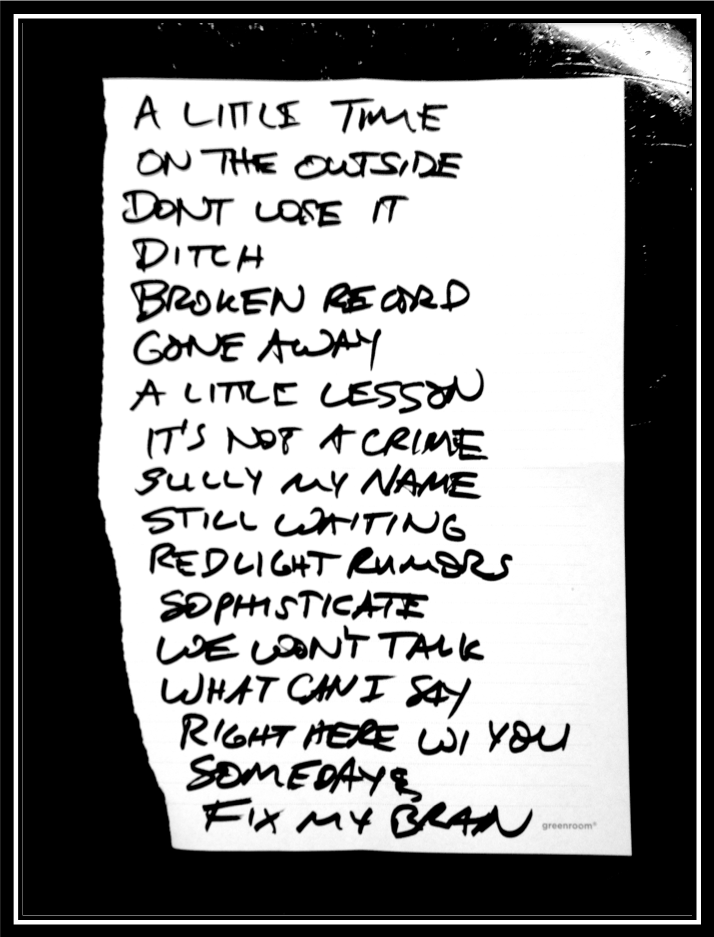 A LITTLE TIME
ON THE OUTSIDE
DONT LOSE IT
DITCH
BROKEN RECORD
GONE AWAY
A LITTLE LESSON
IT'S NOT A CRIME
SULLY MY NAME
STILL WAITING
REDLIGHT RUMORS
SOPHISTICATE
WE WON'T TALK
WHAT CAN I SAY
RIGHT HERE W/ YOU
SOMEDAYS
FIX MY BRAIN
greenroom®